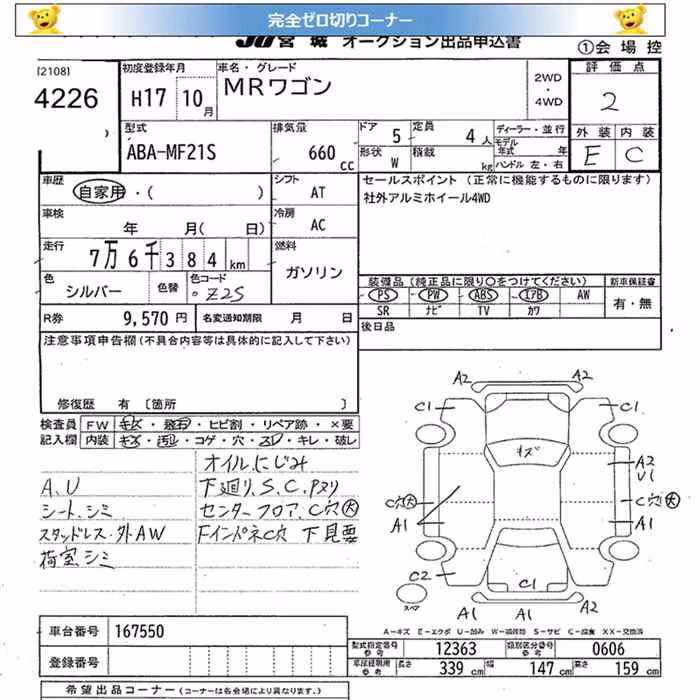 完全ゼロ切りコーナー
JU宮城 オークション出品申込書
①会場控
[2108]
4226
初度登録年月
H17 10月
車名・グレード
MRワゴン
2WD
・
4WD
評価点
2
外装 内装
E C
型式
ABA-MF21S
排気量
660 cc
ドア 5 定員 4人
形状 W 積載 kg
ディーラー・並行
モデル年式 年
ハンドル 左・右
車歴
自家用・( )
シフト
AT
セールスポイント (正常に機能するものに限ります)
社外アルミホイール4WD
車検
年 月( 日)
冷房
AC
走行
7万6千384km
燃料
ガソリン
色
シルバー
色替
色コード
Z2S
装備品 (純正品に限り○をつけてください)
新車保証書
PS PW ABS エアB AW
SR ナビ TV カワ
有・無
R券 9,570円 名変通知期限 月 日
後日品
注意事項申告欄(不具合内容等は具体的に記入して下さい)
修復歴 有 〔箇所 〕
検査員記入欄
FW キズ・飛石・ヒビ割・リペア跡・×要
内装 キズ・汚レ・コゲ・穴・スレ・キレ・破レ
オイルにじみ
A.U 下廻り.S.C.Pヌリ
シート.シミ センターフロア.C穴大
スタッドレス・外AW Fインパネ C穴 下見要
荷室.シミ
A2 A2
C1 C1
キズ
A2
U1
C穴大 C穴大
A1 A1
C2 A2
C1
スペア
A1 A1
A-キズ E-エクボ U-凹み W-補修跡 S-サビ C-腐食 XX-交換済
車台番号 167550
型式指定番号参考 12363 類別区分番号参考 0606
登録番号
長さ 339cm 幅 147cm 高さ 159cm
希望出品コーナー (コーナーは各会場により異なります。)